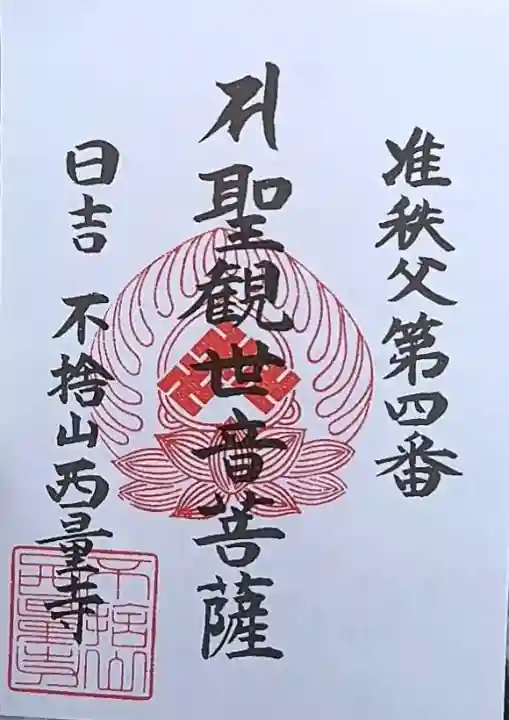 准秩父第四番
聖観世音菩薩
日吉 不捨山西量寺
不捨山
西量寺